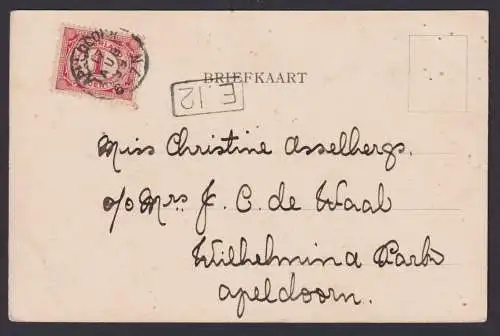 BRIEFKAART
E. 12
Miss Christine Asselbergs.
c/o Mrs J. C. de Waal
Wilhelmina Park
Apeldoorn.